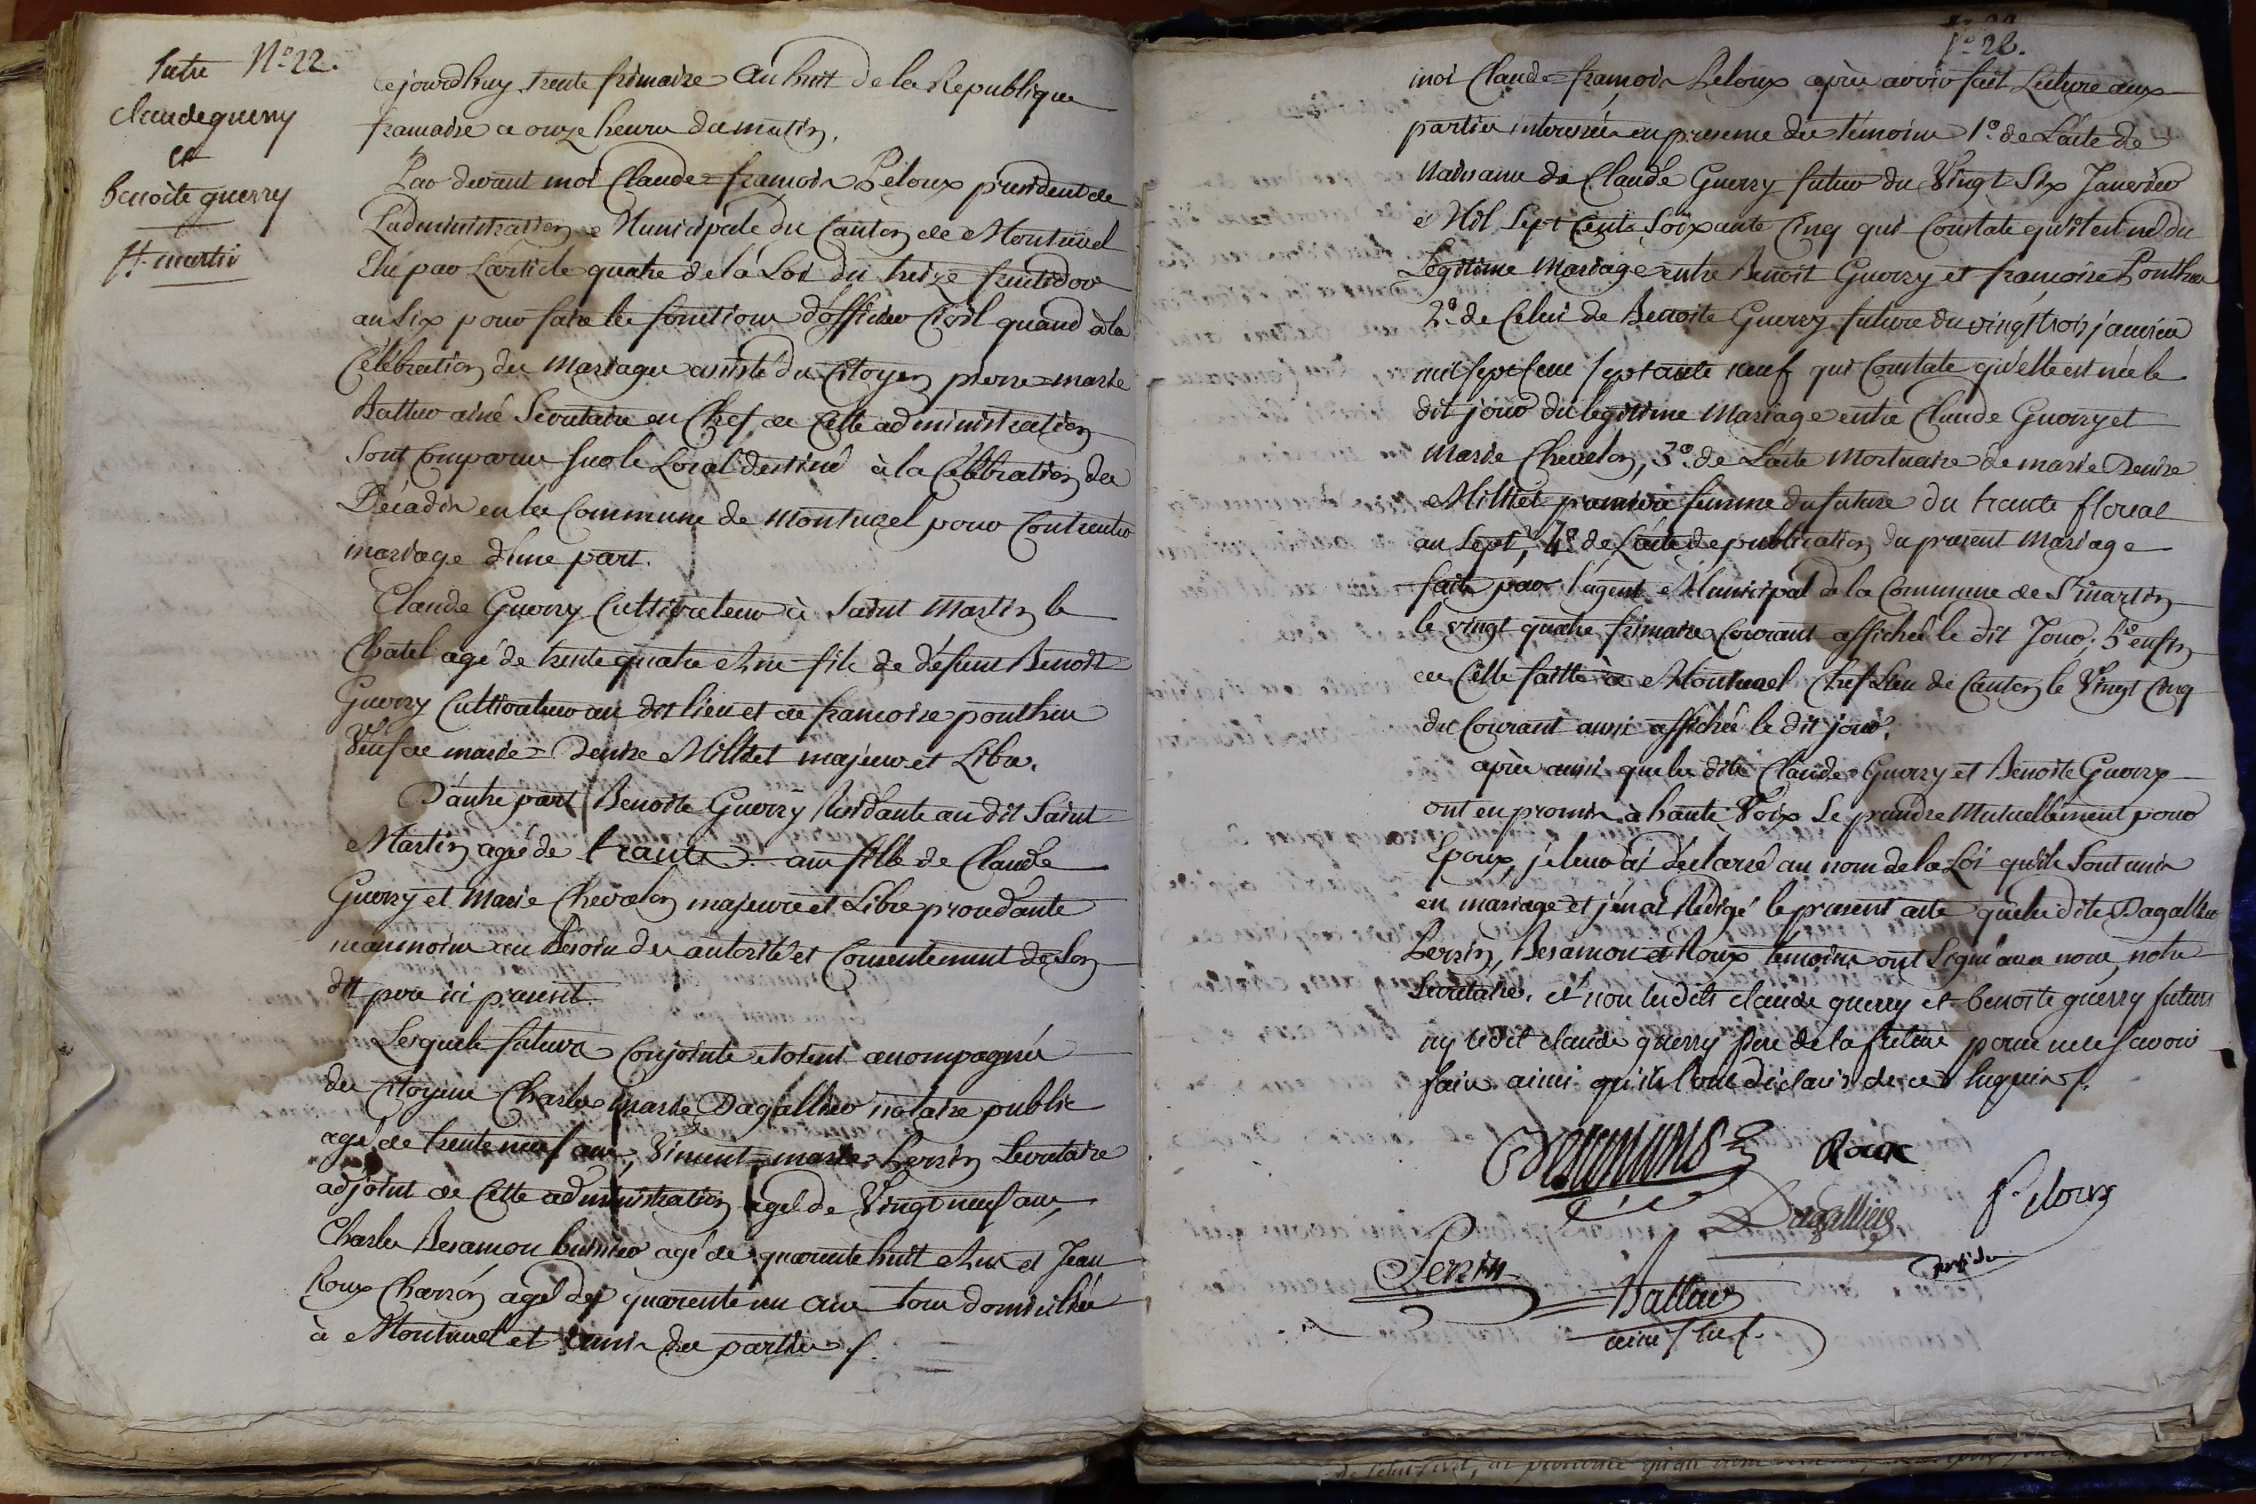 Entre N.° 22.
Claude guerry
et
benoite guerry
St. martin
Cejourd'huy trente frimaire an huit de la Republique
francaise a onze heures du matin,
Par devant moi Claude=francois Peloux président de
L'administration Municipale du Canton de Montrevel
Elu par L'article quatre de la Loi du treize fructidor
an Six pour faire les fonctions d'officier Civil quand à la
Célébration des Mariages assisté du Citoyen pierre=marie
Battur ainé Secretaire en Chef de Cette administration
Sont Comparus sur le Local destiné à la Célébration des
Décadis en la Commune de Montrevel pour Contracter
mariage d'une part.
Claude Guerry Cultivateur à Saint Martin le
Chatel agé de trente quatre ans fils de défunt Benoit
Guerry Cultivateur au dit lieu et de francoise ponthus
Veuf de marie=Denise Milliet majeur et Libre.
D'autre part Benoite Guerry Residante au dit Saint
Martin agée de trante ans fille de Claude
Guerry et Marie Chevalon majeure et Libre procedante
neanmoins au Besoin des autorité et Consentement de Son
dit pere ici présent.
Lesquels futurs Conjoints etoient accompagnés
des Citoyens Charles marie Dagallier notaire public
agé de trente neuf ans, Vincent=marie Perrin Secretaire
adjoint de Cette administration agé de Vingt neuf ans,
Charles Besamon huissier agé de quarente huit ans et Jean
Roux Charron agé de quarente un ans tous domiciliés
à Montrevel et amis des parties /.
N.° 22.
moi Claude=francois Peloux après avoir fait Lecture aux
parties interessées en presence des témoins 1.° de L'acte de
Naissance de Claude Guerry futur du Vingt Six Janvier
Mil Sept Cents Soixante Cinq qui Constate qu'il est né du
Legitime Mariage entre Benoit Guerry et francoise Ponthus
2.° de Celui de Benoite Guerry future du vingt trois janvier
mil sept cent septante neuf qui Constate qu'elle est née le
dit jour du legitime Mariage entre Claude Guerry et
Marie Chevalon, 3.° de L'acte Mortuaire de marie Denise
Milliet premiere femme du future du trante floreal
an Sept, 4.° de L'acte de publication du present Mariage
faite par l'agent Municipal de la Commune de St. martin
le vingt quatre frimaire Courant affichée le dit Jour; 5.° enfin
de Celle faitte à Montrevel Chef Lieu de Canton le Vingt Cinq
du Courant aussi affichée le dit jour.
après aussi que les dits Claude Guerry et Benoite Guerry
ont eu promis à haute Voix Se prendre Mutuellement pour
Epoux, je leur ai déclaré au nom de la Loi qu'ils Sont unis
en mariage et j'en ai Redigé le present acte que les dits Dagallier
Perrin, Besamon et Roux temoins ont Signé avec nous, notre
Secretaire, et non lesdits claude guerry et benoite guerry futurs
ny ledit claude guerry pere de la future pour ne le savoir
faire ainsi qu'ils l'ont déclaré de ce requis /.
Roux
Dagallier
Peloux
presidt
Perrin
Battur
ainé s. chef.